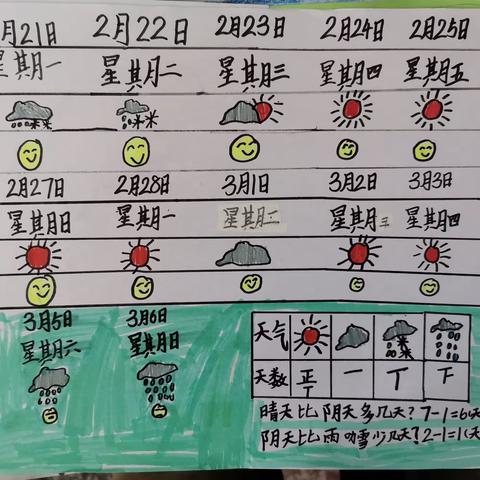 月21日 2月22日 2月23日 2月24日 2月25日
星期一 星期二 星期三 星期四 星期五
2月27日 2月28日 3月1日 3月2日 3月3日
星期日 星期一 星期二 星期三 星期四
3月5日 3月6日
星期六 星期日
天气
天数 正丅 一 丅 下
晴天比阴天多几天?7-1=6(天
阴天比雨加雪少几天?2-1=1(天